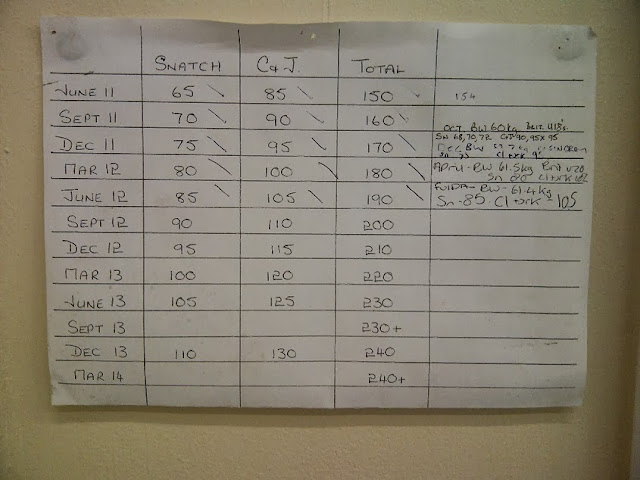 SNATCH C&J. TOTAL
JUNE 11 65 85 150 154
SEPT 11 70 90 160
OCT BW 60kg BRIT. U18's
DEC 11 75 95 170
SN 68, 70, 72 C+J 90, 95X 95
DEC BW
MAR 12 80 100 180
APRIL - BW 61.5kg Brit U20
Sn 80 Cl+Jrk 102
JUNE 12 85 105 190
BW - 61.4kg
Sn - 85 Cl + Jrk - 105
SEPT 12 90 110 200
DEC 12 95 115 210
MAR 13 100 120 220
JUNE 13 105 125 230
SEPT 13 230+
DEC 13 110 130 240
MAR 14 240+